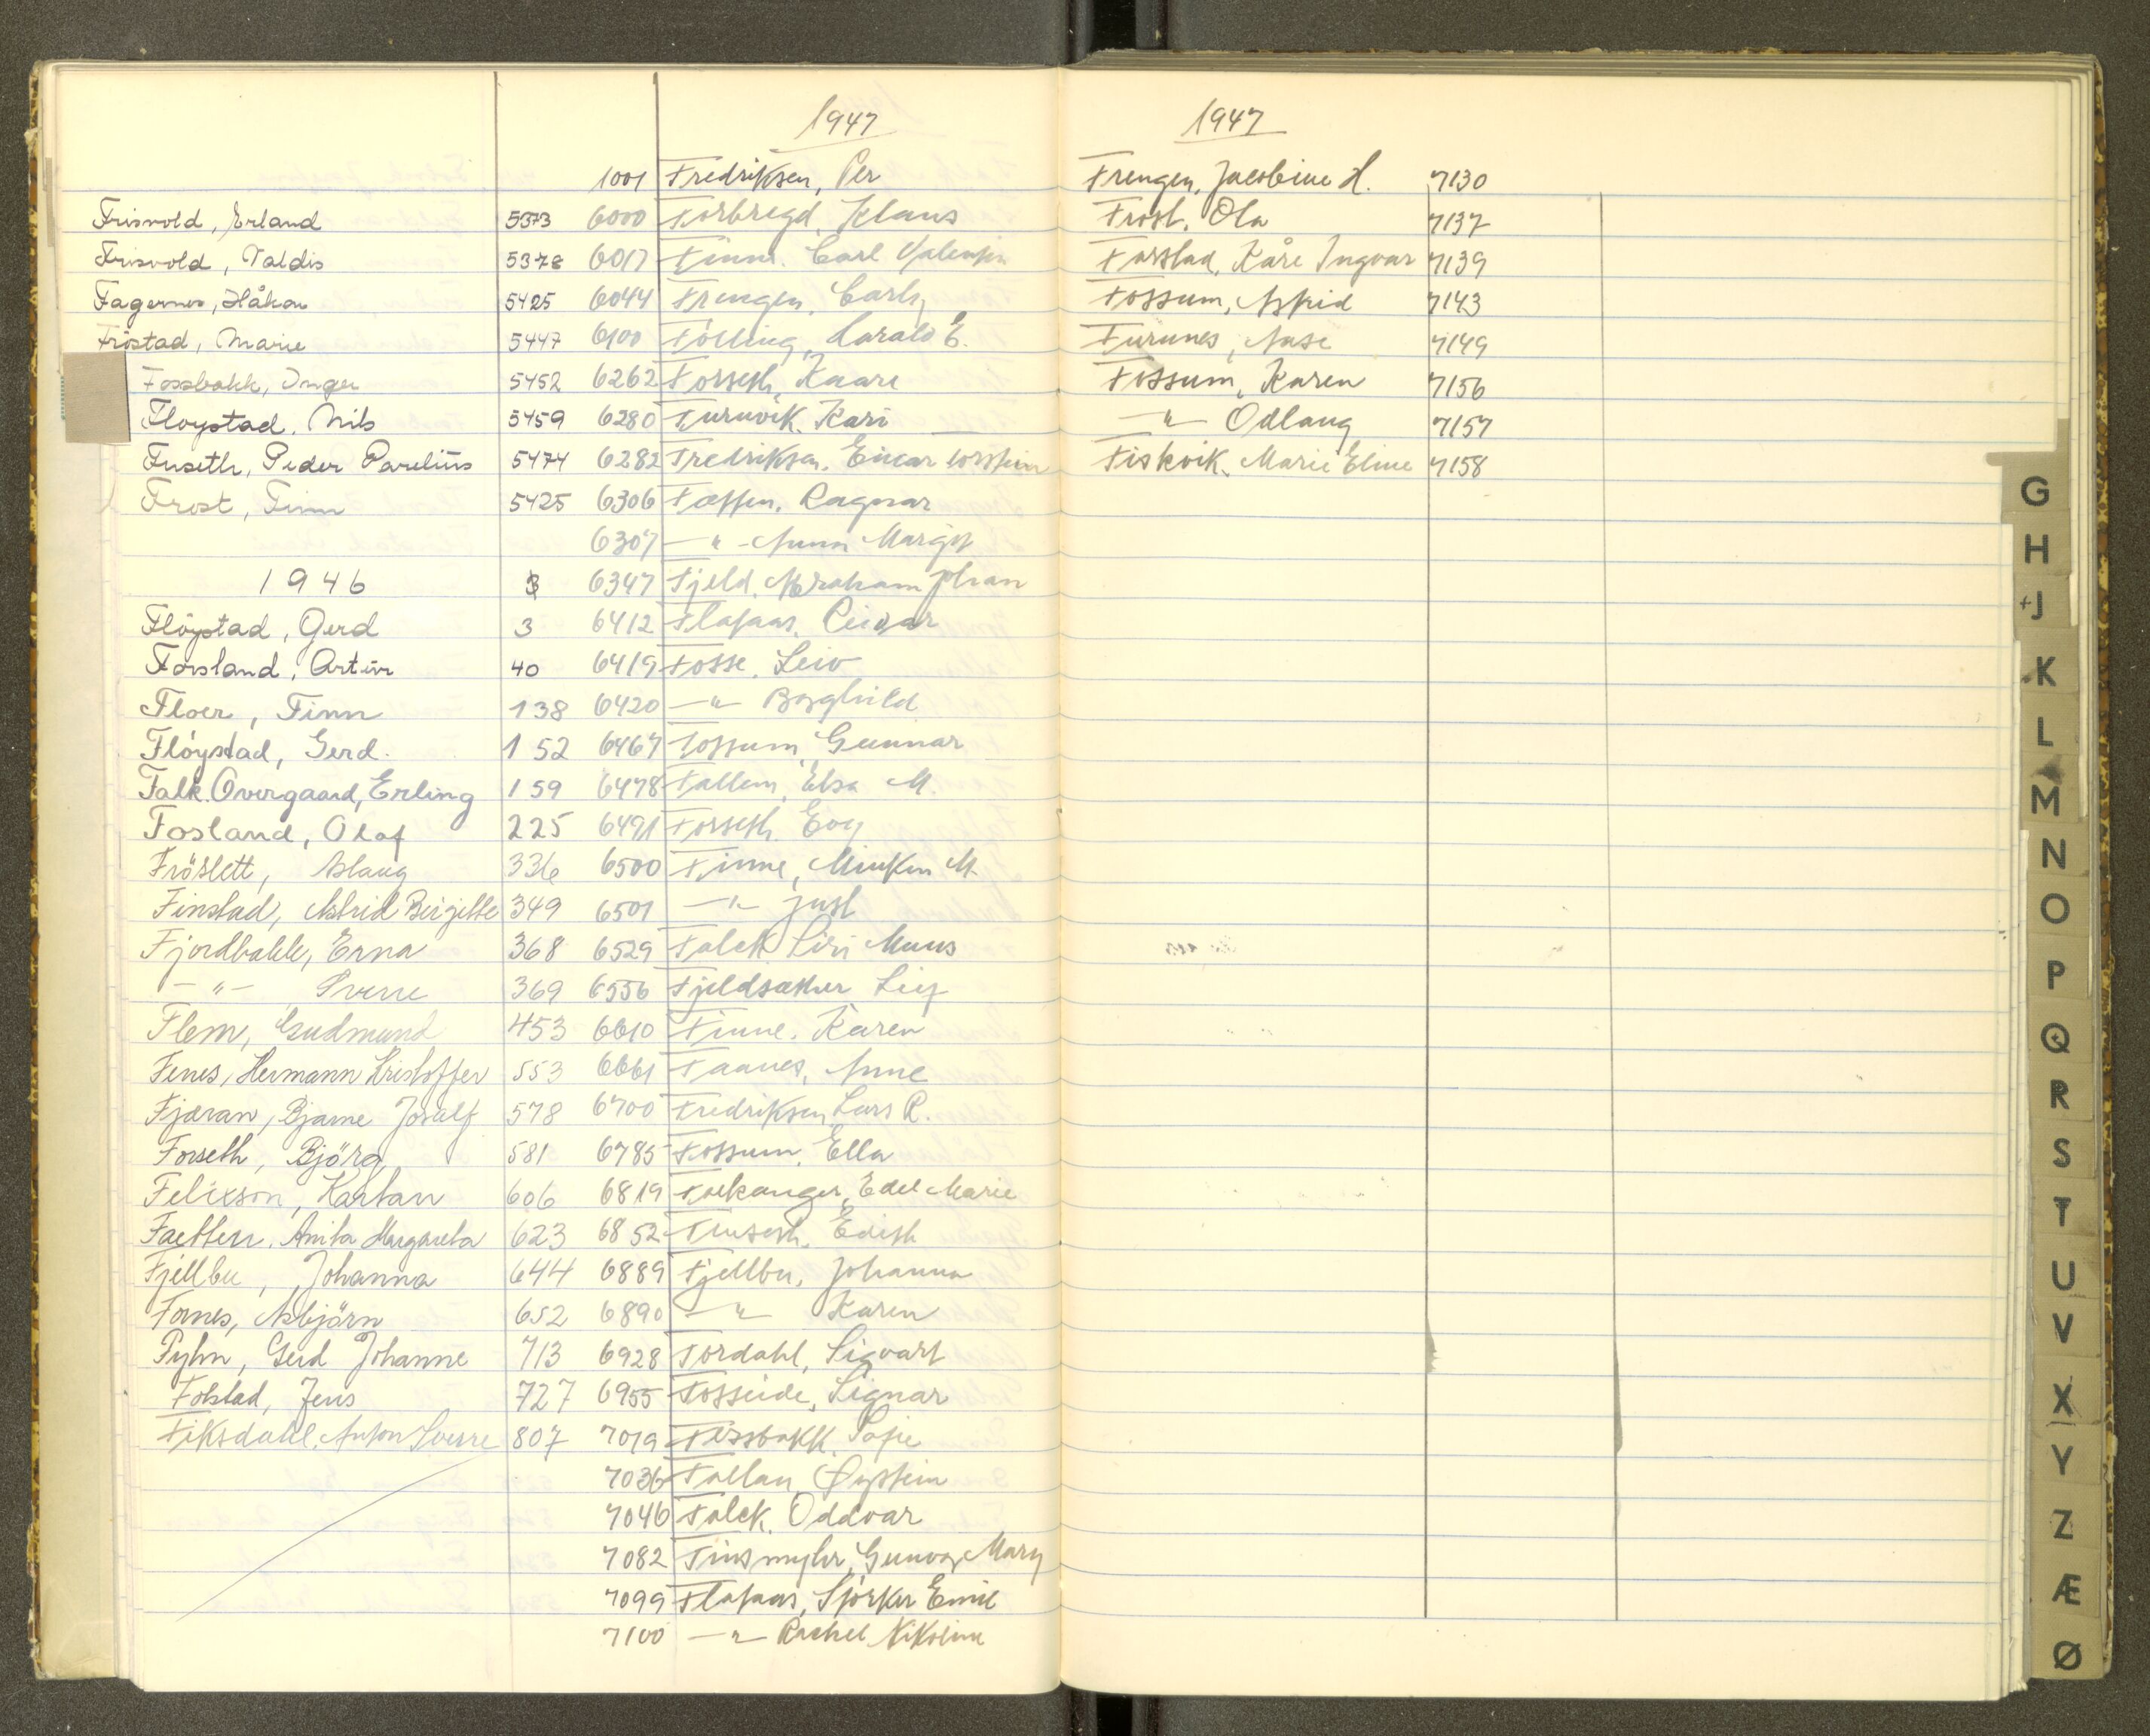 Frisvold, Erland 5373
Frisvold, Valdis 5378
Fagernes, Håkon 5425
Fröstad, Marie 5447
Fossbakk, Inger 5452
Floystad, Nils 5459
Fuseth, Peder Parelius 5474
Frost, Finn 5425
1946
Flöystad, Gerd 3
Forsland, Artur 40
Floer, Finn 138
Flöystad, Gerd. 152
Falk. Overgaard, Erling 159
Fosland, Olaf 225
Fröslett, Aslaug 336
Finstad, Astrid Birgitte 349
Fjordbakk, Erna 368
-"- Sverre 369
Flem, Gudmund 453
Fenes, Hermann Kristoffer 553
Fjæran, Bjarne Josulf 578
Forseth, Björg 581
Felixson, Kartan 606
Faetten, Anita Margareta 623
Fjellbu, Johanna 644
Fornes, Asbjörn 652
Fyhn, Gerd Johanne 713
Folstad, Jens 727
Fiksdahl, Anton Sverre 807
1947
1001 Fredriksen, Per
6000 Forbregd, Klaus
6017 Finne. Carl Valentin
6044 Frengen, Carly
6100 Fölling, Harald E.
6262 Forseth, Kaare
6280 Furuvik, Kari
6282 Fredriksen, Einar Torstein
6306 Fætten, Ragnar
6307 -"- Anna Margit
6347 Fjeld, Abraham Johan
6412 Flataas, Reidar
6419 Fosse, Leiv
6420 -"- Borghild
6467 Fossum, Gunnar
6478 Fallem, Elsa M.
6491 Forseth, Evy
6500 Finne, Minken M.
6501 -"- Just
6529 Falck Siri Muus
6556 Fjeldsæther Leif
6610 Finne, Karen
6661 Faanes, Anne
6700 Fredriksen Lars R.
6785 Fossum, Ella
6819 Falkanger, Edel Marie
6852 Fuseth, Edith
6889 Fjellbu, Johanna
6890 -"- Karen
6928 Fordahl, Sigvart
6955 Fosseide, Signar
7019 Fossbakk, Sofie
7036 Fallan, Øystein
7046 Falck, Oddvar
7082 Finsmyhr, Gunvor Mary
7099 Flataas, Störker Emil
7100 -"- Rachel Nikoline
1947
Frengen, Jacobine H. 7130
Frost, Ola 7137
Farstad, Kåre Ingvar 7139
Fossum, Astrid 7143
Furunes, Aase 7149
Fossum, Karen 7156
-"- Odlaug 7157
Fiskvik, Marie Eline 7158
G
H
I+J
K
L
M
N
O
P
Q
R
S
T
U
V
X
Y
Z
Æ
Ø